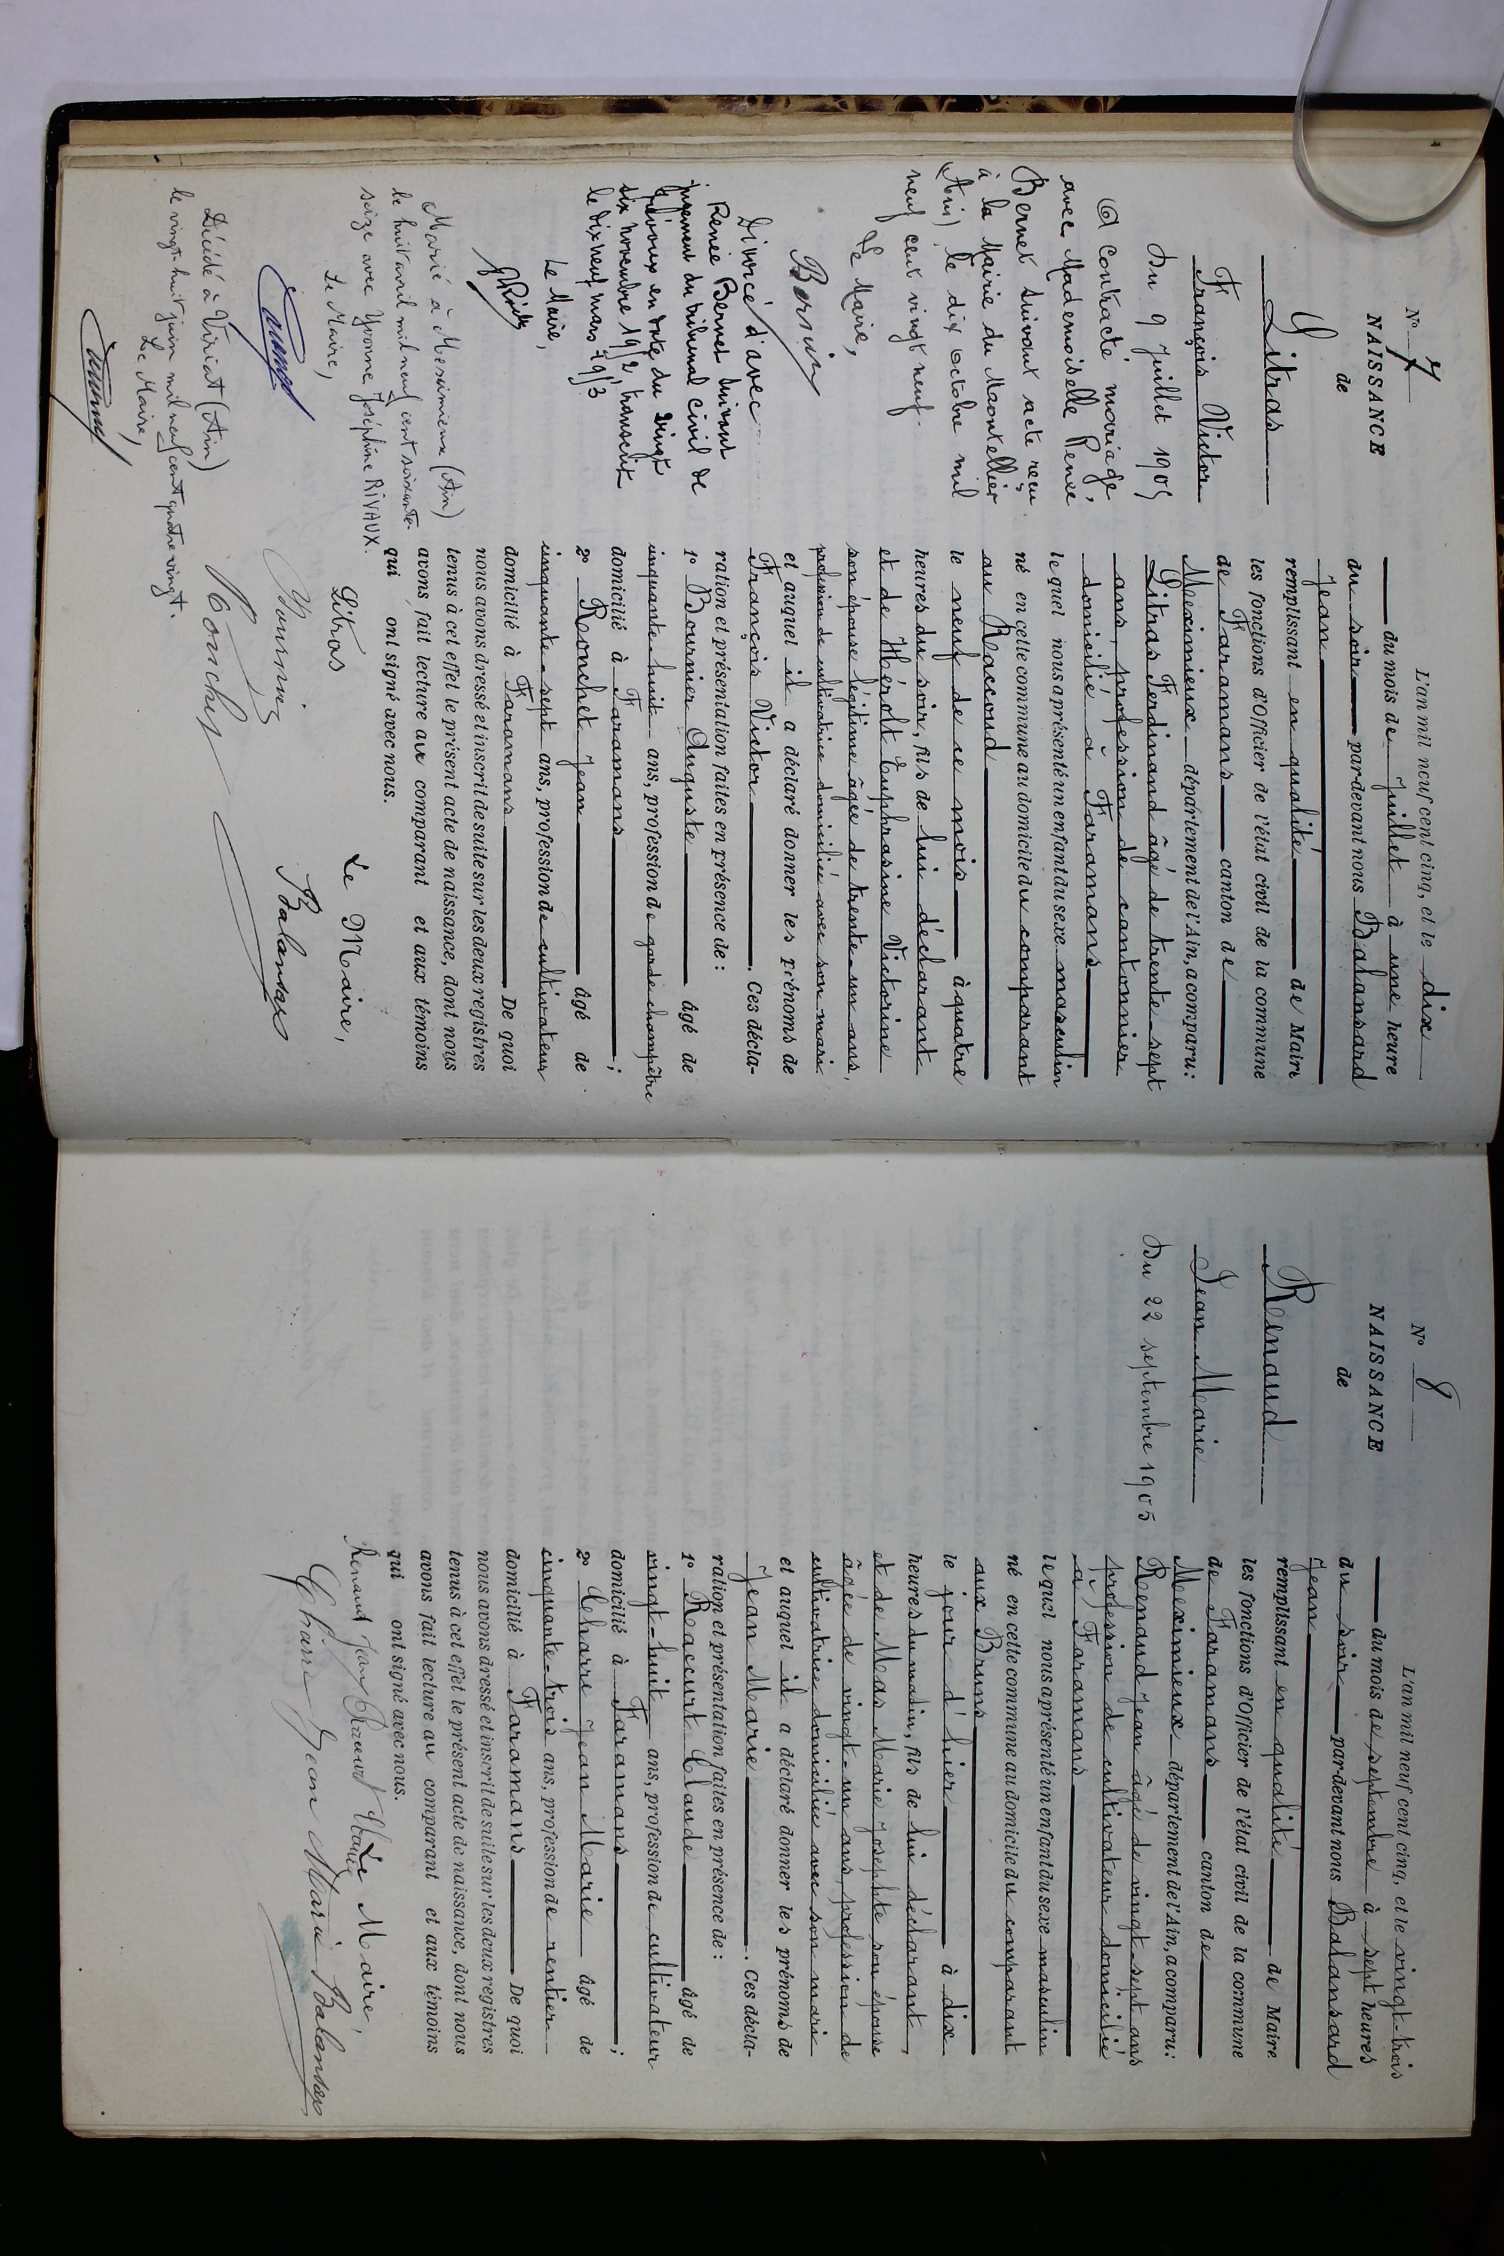 N° 7
NAISSANCE
de
Litras
François Victor
Du 9 Juillet 1905
a contracté mariage
avec Mademoiselle Renée
Bernet suivant acte reçu
à la Mairie du Montellier
(Ain), le dix octobre mil
neuf cent vingt neuf.
Le Maire,
Divorcé d'avec
Renée Bernet suivant
jugement du tribunal civil de
Trévoux en date du vingt
six novembre 1912, transcrit
le dix neuf mars 1913
Le Maire,
Marié à Meximieux (Ain)
le huit avril mil neuf cent soixante
seize avec Yvonne Joséphine RIVAUX.
Le Maire,
Décédé à Viriat (Ain)
le vingt-huit juin mil neuf cent quatre vingt.
Le Maire,
L'an mil neuf cent cinq, et le dix
du mois de Juillet à une heure
du soir par-devant nous Balansard
Jean
remplissant en qualité de Maire
les fonctions d'Officier de l'état civil de la commune
de Faramans canton de
Meximieux département de l'Ain, a comparu:
Litras Ferdinand âgé de trente-sept
ans, profession de cantonnier
domicilié à Faramans
lequel nous a présenté un enfant du sexe masculin
né en cette commune au domicile du comparant
au Raccoud
le neuf de ce mois à quatre
heures du soir, fils de lui déclarant
et de Hérolt Euphrasine Victorine
son épouse légitime âgée de trente-un ans,
profession de cultivatrice domiciliée avec son mari
et auquel il a déclaré donner les prénoms de
François Victor. Ces décla-
ration et présentation faites en présence de:
1° Bournier Auguste âgé de
cinquante-huit ans, profession de garde champêtre
domicilié à Faramans;
2° Ronchet Jean âgé de
cinquante-sept ans, profession de cultivateur
domicilié à Faramans De quoi
nous avons dressé et inscrit de suite sur les deux registres
tenus à cet effet le présent acte de naissance, dont nous
avons fait lecture aux comparant et aux témoins
qui ont signé avec nous.
Litras Le Maire,
Bournier Balansard
Ronchet
N° 8
NAISSANCE
de
Renaud
Jean Marie
Du 22 septembre 1905
L'an mil neuf cent cinq, et le vingt-trois
du mois de septembre à sept heures
du soir par-devant nous Balansard
Jean
remplissant en qualité de Maire
les fonctions d'Officier de l'état civil de la commune
de Faramans canton de
Meximieux département de l'Ain, a comparu:
Renaud Jean âgé de vingt sept ans
profession de cultivateur domicilié
à Faramans
lequel nous a présenté un enfant du sexe masculin
né en cette commune au domicile du comparant
aux Bruns
le jour d'hier à dix
heures du matin, fils de lui déclarant,
et de Mas Marie Josephte son épouse
âgée de vingt-un ans, profession de
cultivatrice domiciliée avec son mari
et auquel il a déclaré donner les prénoms de
Jean Marie. Ces décla-
ration et présentation faites en présence de:
1° Raccurt Claude âgé de
vingt-huit ans, profession de cultivateur
domicilié à Faramans;
2° Charre Jean Marie âgé de
cinquante-trois ans, profession de rentier
domicilié à Faramans De quoi
nous avons dressé et inscrit de suite sur les deux registres
tenus à cet effet le présent acte de naissance, dont nous
avons fait lecture au comparant et aux témoins
qui ont signé avec nous.
Renaud Jean Raccurt Claude Le Maire,
Charre Jean Marie Balansard